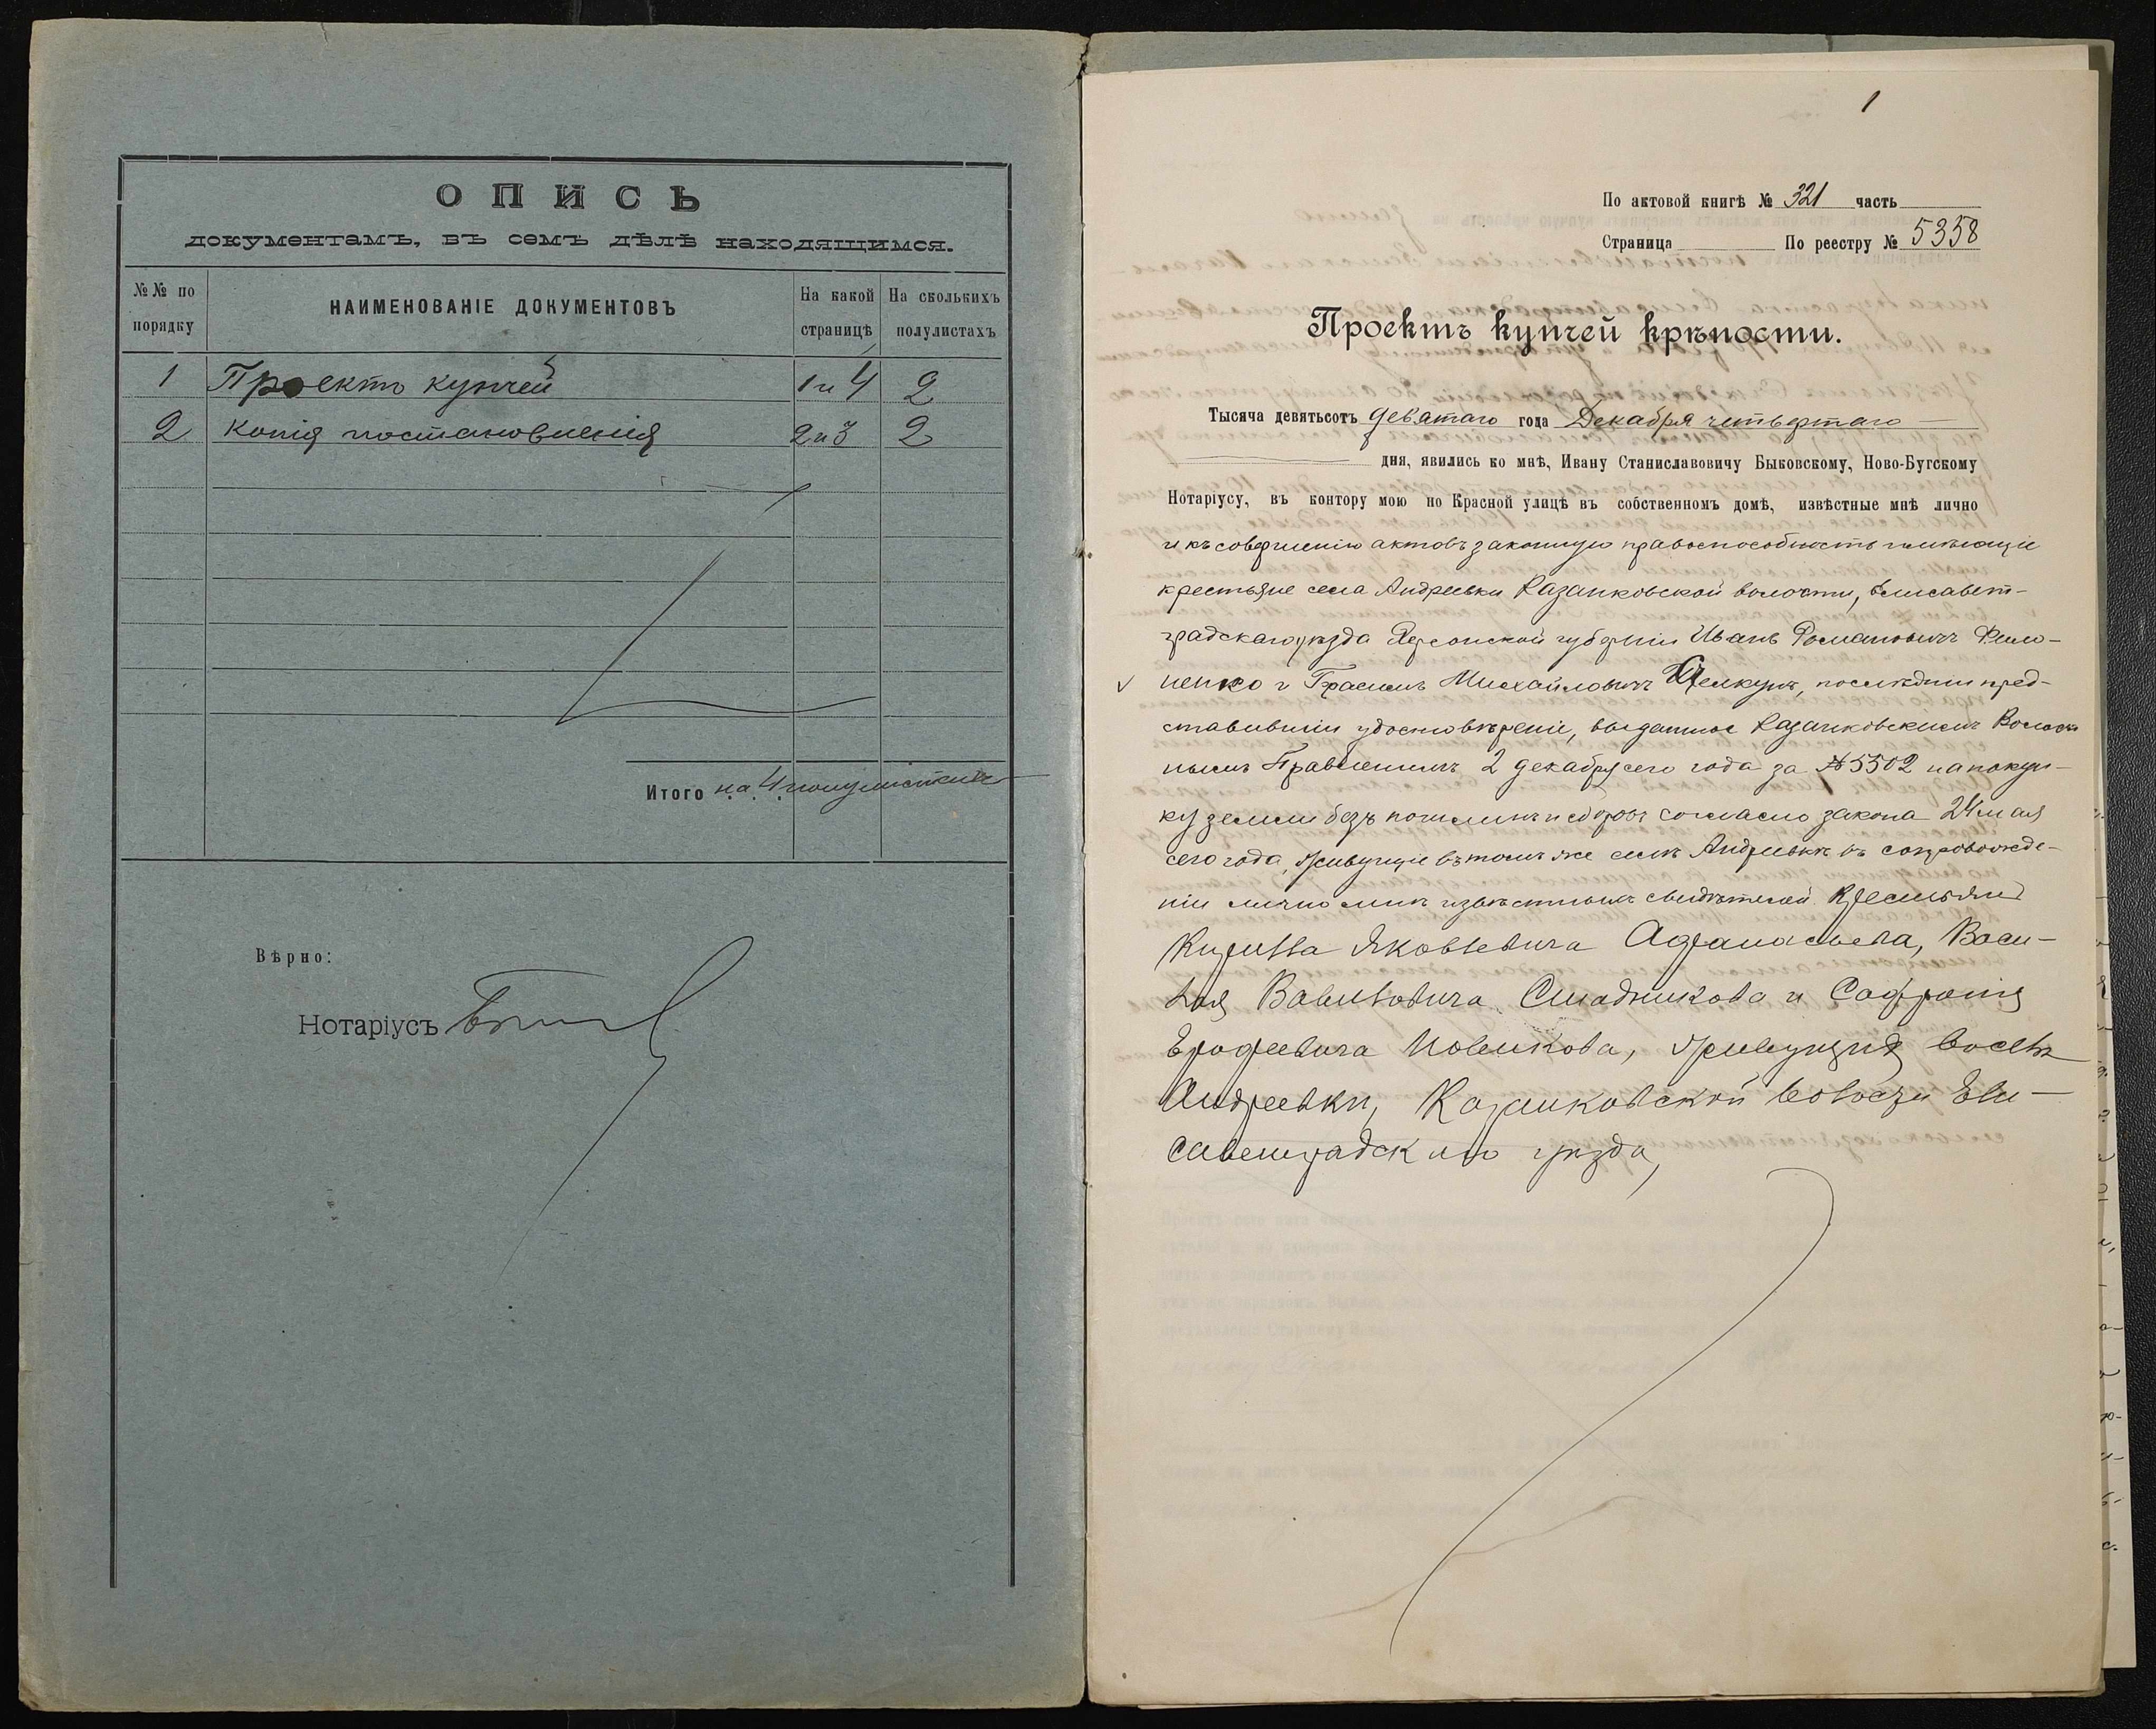 ОПИСЬ
документамъ, въ семъ дѣлѣ находящимся.
№№ по порядку
НАИМЕНОВАНІЕ ДОКУМЕНТОВЪ
На какой страницѣ
На сколькихъ полулистахъ
1 Проектъ купчей 1 и 4 2
2 Копія постановленія 2 и 3 2
Итого на 4 полулистахъ
Вѣрно:
Нотаріусъ
1
По актовой книгѣ № 321 часть
Страница По реестру № 5358
Проектъ купчей крѣпости.
Тысяча девятьсотъ девятаго года Декабря четвертаго
дня, явились ко мнѣ, Ивану Станиславовичу Быковскому, Ново-Бугскому
Нотаріусу, въ контору мою по Красной улицѣ въ собственномъ домѣ, извѣстные мнѣ лично
и къ совершенію актовъ законную правоспособность имѣющіе
крестьяне села Андреевки Казанковской волости, Елисавет-
градскаго уѣзда Херсонской губерніи Иванъ Романовичъ
и Герасимъ Михайловичъ послѣдній пред-
ставившій удостовѣреніе, выданное Казанковскимъ Волост
нымъ Правленіемъ 2 декабря сего года за № 5502 на покуп-
ку земли безъ пошлинъ и сборовъ согласно закона 24 мая
сего года, живущіе въ томъ же селѣ Андреевкѣ въ сопровожде-
ніи лично мнѣ извѣстныхъ свидѣтелей крестьянъ
Кирилла Яковлевича Афанасьева, Васи-
лія Вавиловича и Сафронія
Ерофеевича Новикова, живущихъ въ селѣ
Андреевки, Казанковской волости Ели-
саветградскаго уѣзда,